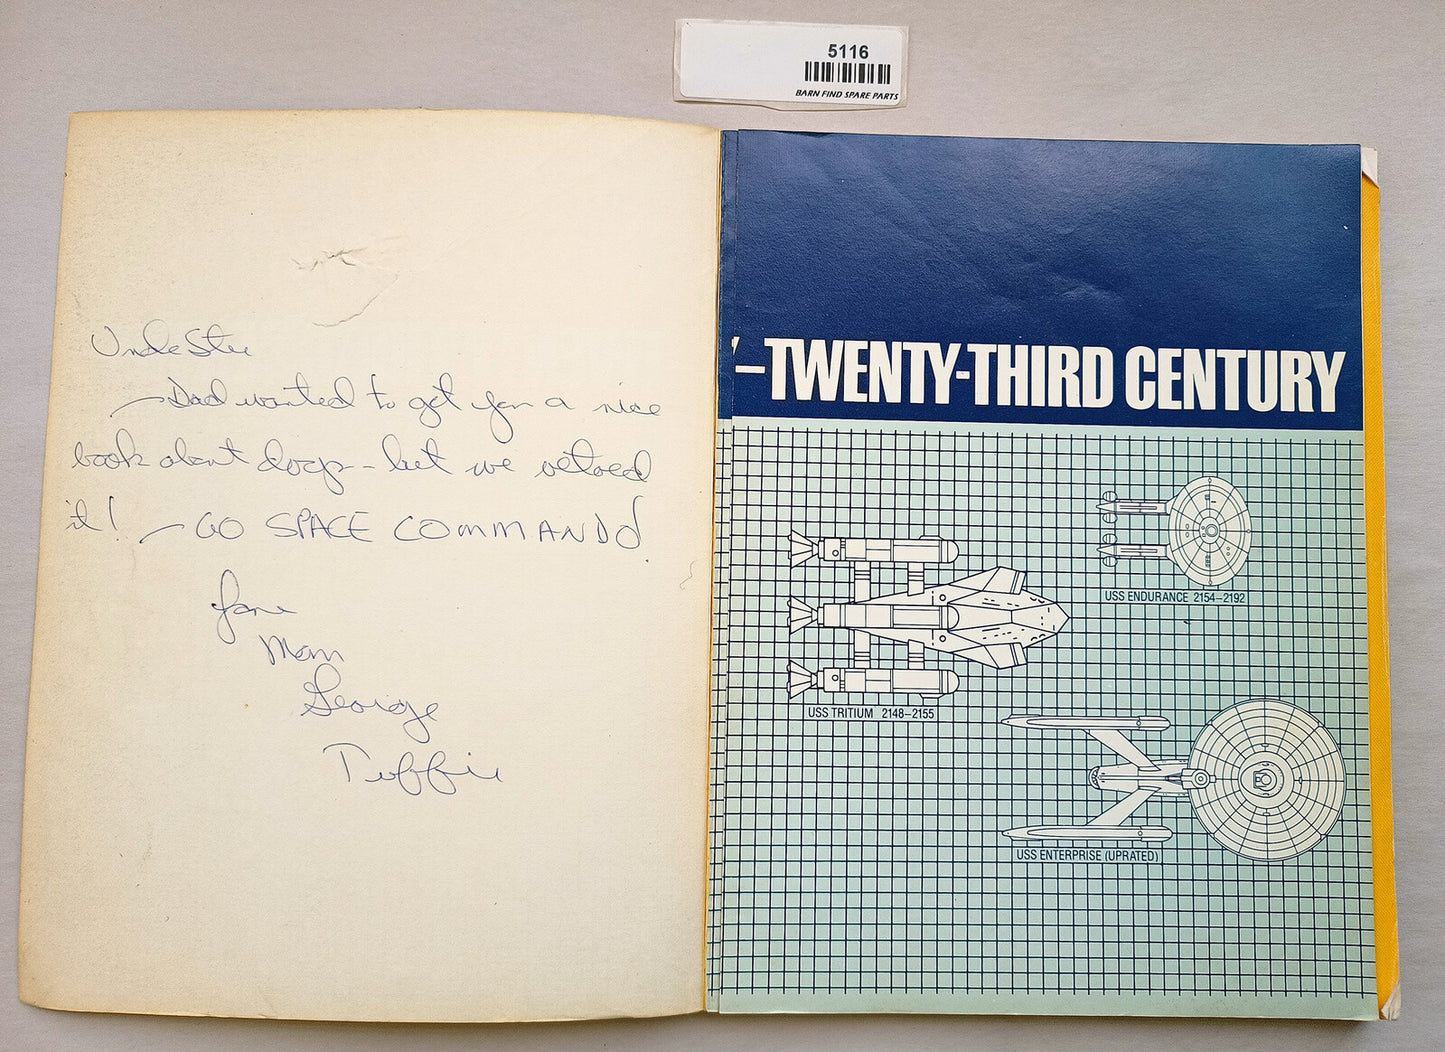 5116
BARN FIND SPARE PARTS
Uncle Stu
—Dad wanted to get you a nice
book about dogs – but we vetoed
it! — GO SPACE COMMANDO!
Jane
Mom
George
Tuffie
–TWENTY-THIRD CENTURY
USS ENDURANCE 2154–2192
USS TRITIUM 2148–2155
USS ENTERPRISE (UPRATED)